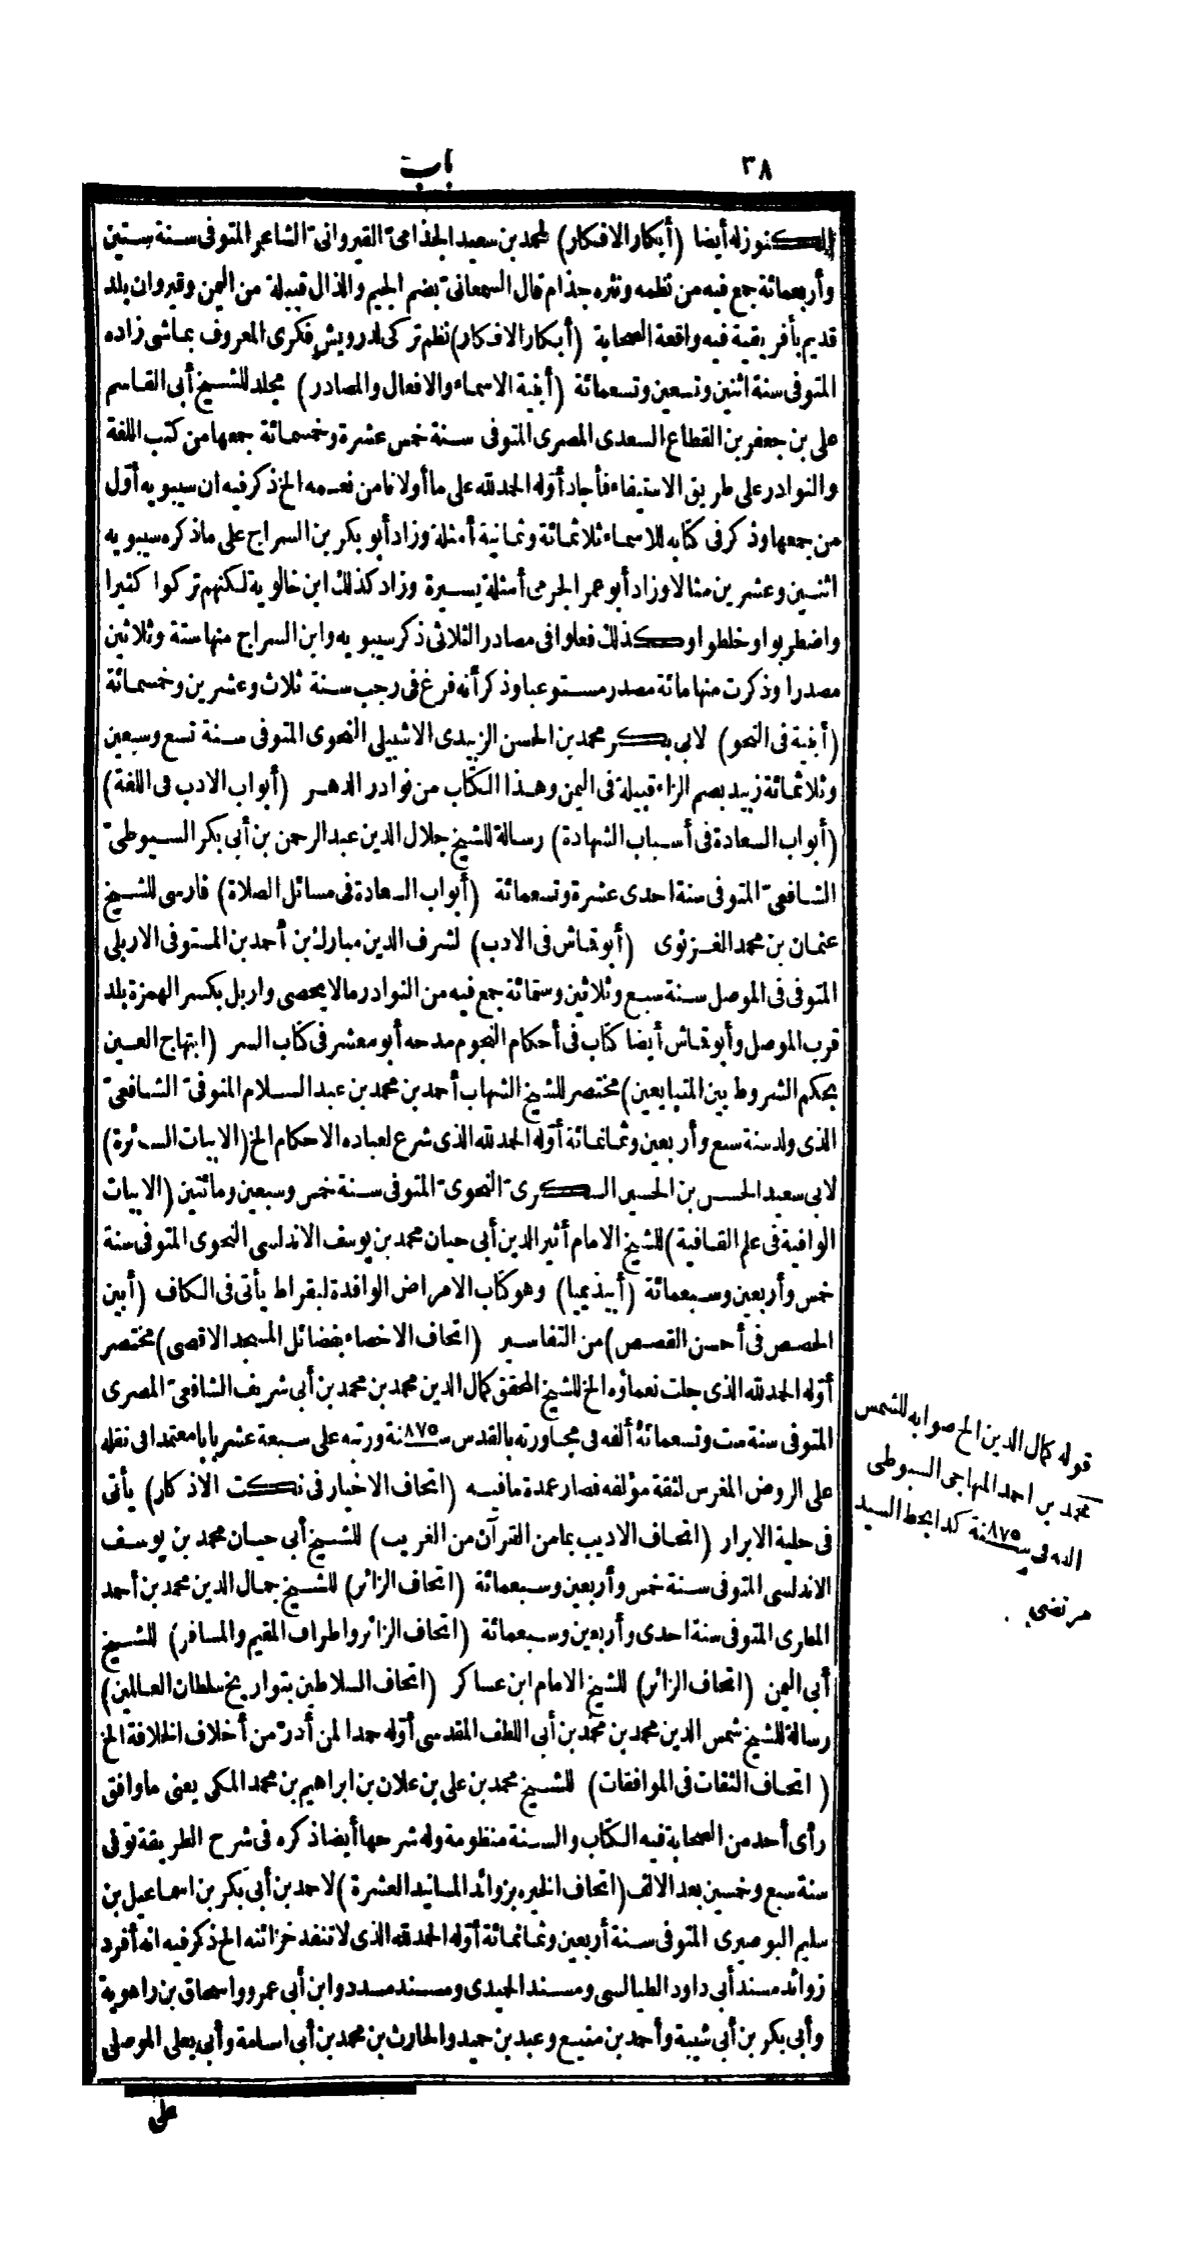 ٣٨
باب
الكنوز له أيضا (أبكار الافكار) لمحمد بن سعيد الجذامى القيروانى الشاعر المتوفى سنة ستين
وأربعمائة جمع فيه من نظمه ونثره جذام قال السمعانى بضم الجيم والذال قبيلة من اليمن وقيروان بلد
قديم بأفريقية فيه واقعة الصحابة (أبكار الافكار) نظم تركى لدرويش فكرى المعروف بماشى زاده
المتوفى سنة اثنين وتسعين وتسعمائة (أبنية الاسماء والافعال والمصادر) مجلد للشيخ أبى القاسم
على بن جعفر بن القطاع السعدى المصرى المتوفى سنة خمس عشرة وخمسمائة جمعها من كتب اللغة
والنوادر على طريق الاستيفاء فأجاد أوله الحمد لله على ما أولانا من نعمه الخ ذكر فيه ان سيبويه أول
من جمعها وذكر فى كتابه للاسماء ثلاثمائة وثمانية أمثلة وزاد أبو بكر بن السراج على ما ذكره سيبويه
اثنين وعشرين مثالا وزاد أبو عمر الجرمى أمثلة يسيرة وزاد كذلك ابن خالويه لكنهم تركوا كثيرا
واضطربوا وخلطوا وكذلك فعلوا فى مصادر الثلاثى ذكر سيبويه وابن السراج منها ستة وثلاثين
مصدرا وذكرت منها مائة مصدر مستوعبا وذكر أنه فرغ فى رجب سنة ثلاث وعشرين وخمسمائة
(أبنية فى النحو) لابى بكر محمد بن الحسن الزبيدى الاشبيلى النحوى المتوفى سنة تسع وسبعين
وثلاثمائة زبيد بضم الزاء قبيلة فى اليمن وهذا الكتاب من نوادر الدهر (أبواب الادب فى اللغة)
(أبواب السعادة فى أسباب الشهادة) رسالة للشيخ جلال الدين عبد الرحمن بن أبى بكر السيوطى
الشافعى المتوفى سنة احدى عشرة وتسعمائة (أبواب السعادة فى مسائل الصلاة) فارسى للشيخ
عثمان بن محمد الغزنوى (أبو قماش فى الادب) لشرف الدين مبارك بن أحمد بن المستوفى الاربلى
المتوفى فى الموصل سنة سبع وثلاثين وستمائة جمع فيه من النوادر مالا يحصى واربل بكسر الهمزة بلد
قرب الموصل وأبو قماش أيضا كتاب فى أحكام النجوم مدحه أبو معشر فى كتاب السر (ابتهاج العين
بحكم الشروط بين المتبايعين) مختصر للشيخ الشهاب أحمد بن محمد بن عبد السلام المنوفى الشافعى
الذى ولد سنة سبع وأربعين وثمانمائة أوله الحمد لله الذى شرع لعباده الاحكام الخ (الابيات السائرة)
لابى سعيد الحسن بن الحسين السكرى النحوى المتوفى سنة خمس وسبعين ومائتين (الابيات
الوافية فى علم القافية) للشيخ الامام أثير الدين أبى حيان محمد بن يوسف الاندلسى النحوى المتوفى سنة
خمس وأربعين وسبعمائة (أبيذيميا) وهو كتاب الامراض الوافدة لبقراط يأتى فى الكاف (أبين
الحصص فى أحسن القصص) من التفاسير (اتحاف الاخصاء بفضائل المسجد الاقصى) مختصر
أوله الحمد لله الذى جلت نعماؤه الخ للشيخ المحقق كمال الدين محمد بن محمد بن أبى شريف الشافعى المصرى
المتوفى سنة ست وتسعمائة ألفه فى مجاورته بالقدس سنة ٨٧٥ ورتبه على سبعة عشر بابا معتمدا فى نقله
على الروض المغرس لثقة مؤلفه فصار عمدة مافيه (اتحاف الاخيار فى نكت الاذكار) يأتى
فى حلية الابرار (اتحاف الاديب بما من القرآن من الغريب) للشيخ أبى حيان محمد بن يوسف
الاندلسى المتوفى سنة خمس وأربعين وسبعمائة (اتحاف الزائر) للشيخ جمال الدين محمد بن أحمد
المطرى المتوفى سنة احدى وأربعين وسبعمائة (اتحاف الزائر واطراف المقيم والمسافر) للشيخ
أبى اليمن (اتحاف الزائر) للشيخ الامام ابن عساكر (اتحاف السلاطين بتواريخ سلطان العالمين)
رسالة للشيخ شمس الدين محمد بن محمد بن أبى اللطف المقدسى أوله حمدا لمن أدر من أخلاف الخلافة الخ
(اتحاف الثقات فى الموافقات) للشيخ محمد بن على بن علان بن ابراهيم بن محمد المكى يعنى ماوافق
رأى أحد من الصحابة فيه الكتاب والسنة منظومة وله شرحها أيضا ذكره فى شرح الطريقة توفى
سنة سبع وخمسين بعد الالف (اتحاف الخيره بزوائد المسانيد العشرة) لاحمد بن أبى بكر بن اسماعيل بن
سليم البوصيرى المتوفى سنة أربعين وثمانمائة أوله الحمد لله الذى لا تنفد خزائنه الخ ذكر فيه انه أفرد
زوائد مسند أبى داود الطيالسى ومسند الحميدى ومسند مسدد وابن أبى عمرو واسحاق بن راهوية
وأبى بكر بن أبى شيبة وأحمد بن منيع وعبد بن حميد والحارث بن محمد بن أبى اسامة وأبى يعلى الموصلى
على
قوله كمال الدين الخ صوابه للشمس
محمد بن احمد المنهاجى السيوطى
الفه فى سنة ٨٧٥ كذا بخط السيد
مرتضى